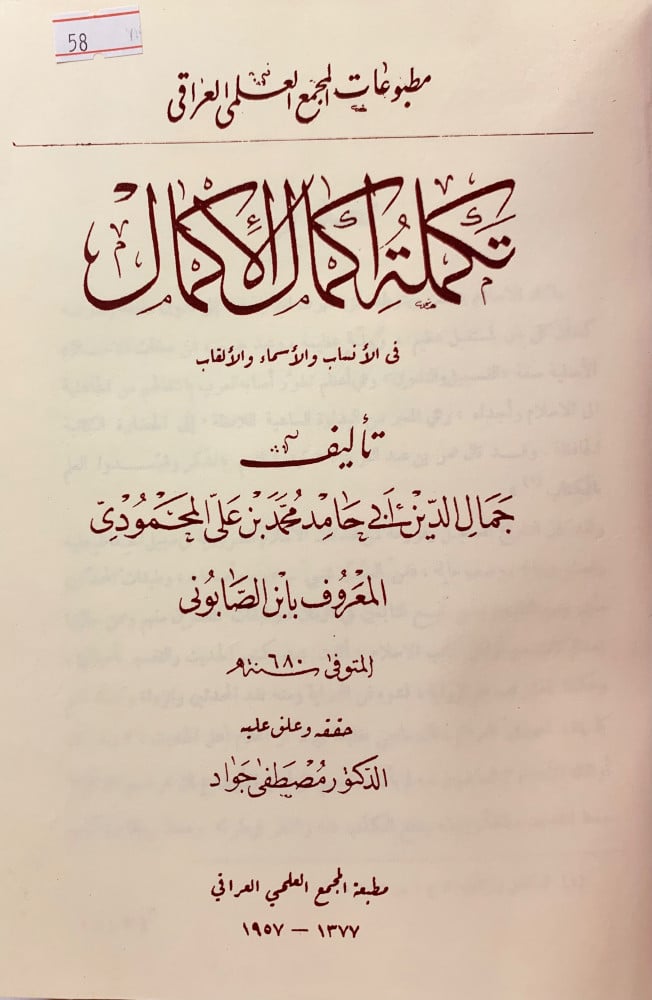 58
مطبوعات المجمع العلمي العراقي
تكملة إكمال الإكمال
في الأنساب والأسماء والألقاب
تأليف
جَمَالِ الدِّيْن أَبي حَامِد مُحَمَّد بْن عَلي المحْمُوْدِيّ
المَعْرُوف بابْن الصَّابُونى
المتوفى سنة ٦٨٠ هـ
حققه وعلق عليه
الدكتور مُصْطَفى جَواد
مطبعة المجمع العلمي العراقي
١٣٧٧ – ١٩٥٧